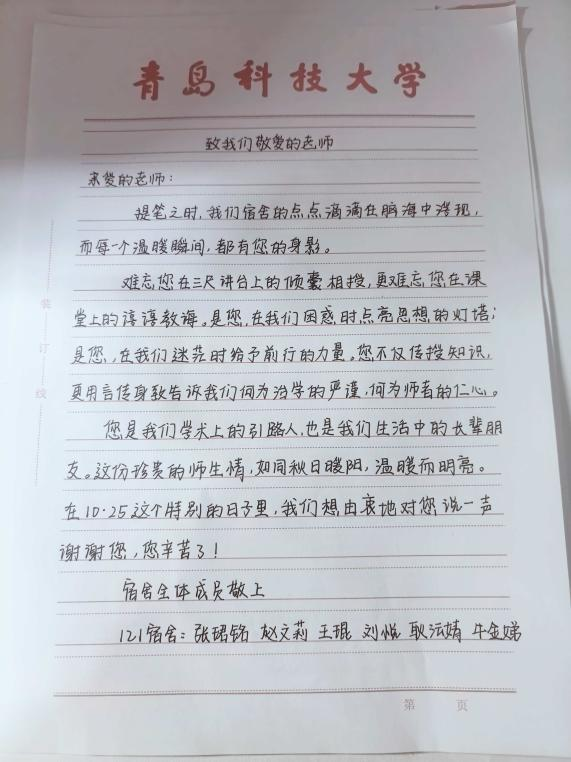 青岛科技大学
致我们敬爱的老师
亲爱的老师：
提笔之时，我们宿舍的点点滴滴在脑海中浮现，
而每一个温暖瞬间，都有您的身影。
难忘您在三尺讲台上的倾囊相授，更难忘您在课
堂上的谆谆教诲。是您，在我们困惑时点亮思想的灯塔；
是您，在我们迷茫时给予前行的力量。您不仅传授知识，
更用言传身致告诉我们何为治学的严谨，何为师者的仁心。
您是我们学术上的引路人，也是我们生活中的长辈朋
友。这份珍贵的师生情，如同秋日暖阳，温暖而明亮。
在10·25这个特别的日子里，我们想由衷地对您说一声
谢谢您，您辛苦了！
宿舍全体成员敬上
121宿舍：张珺铭 赵文莉 王琨 刘悦 耿沄婧 牛金娣
装 订 线
第 页